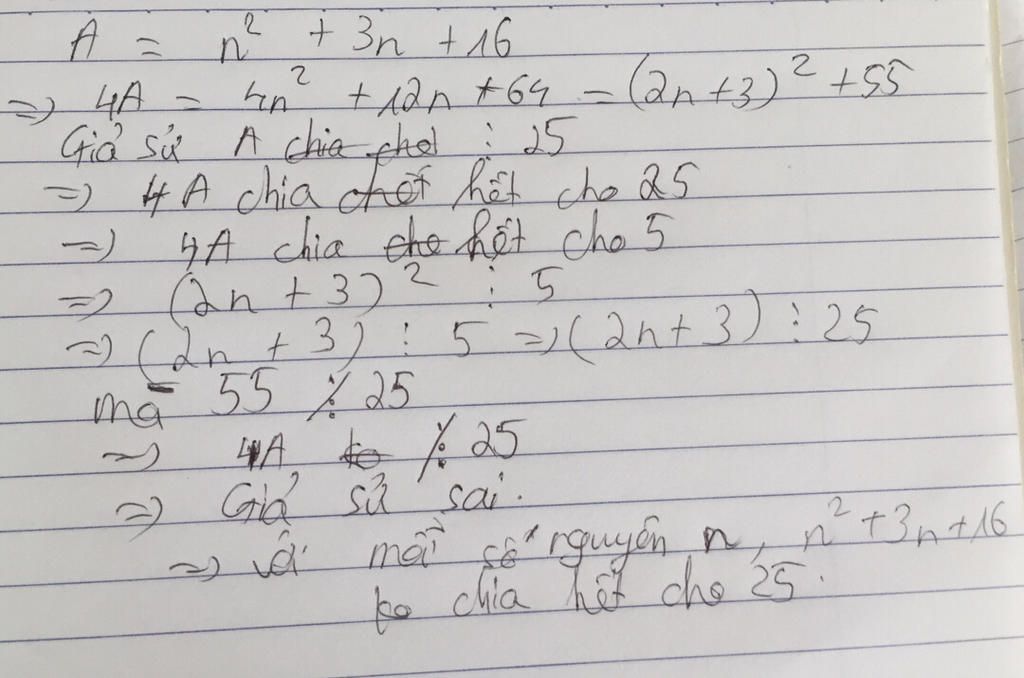 A = n² + 3n + 16
=> 4A = 4n² + 12n + 64 = (2n+3)² + 55
Giả sử A chia cho ⋮ 25
=> 4A chia chết hết cho 25
=> 4A chia cho hết cho 5
=> (2n + 3)² ⋮ 5
=> (2n + 3) ⋮ 5 => (2n + 3) ⋮ 25
mà 55 ⋮̸ 25
=> 4A ko ⋮̸ 25
=> Giả sử sai.
=> với mỗi số nguyên n, n² + 3n + 16
ko chia hết cho 25.